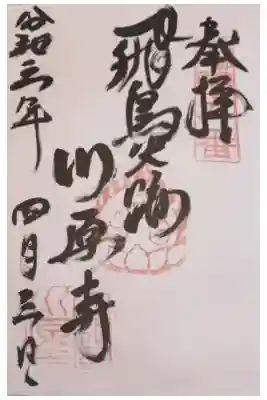 奉拝
飛鳥
川原寺
令和三年 四月三日